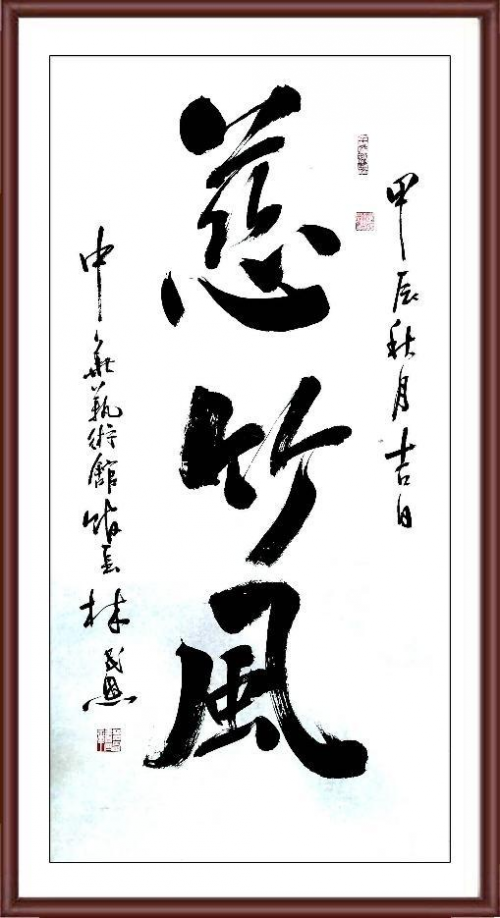 甲辰秋月吉日
慈竹風
中華藝術館館长林